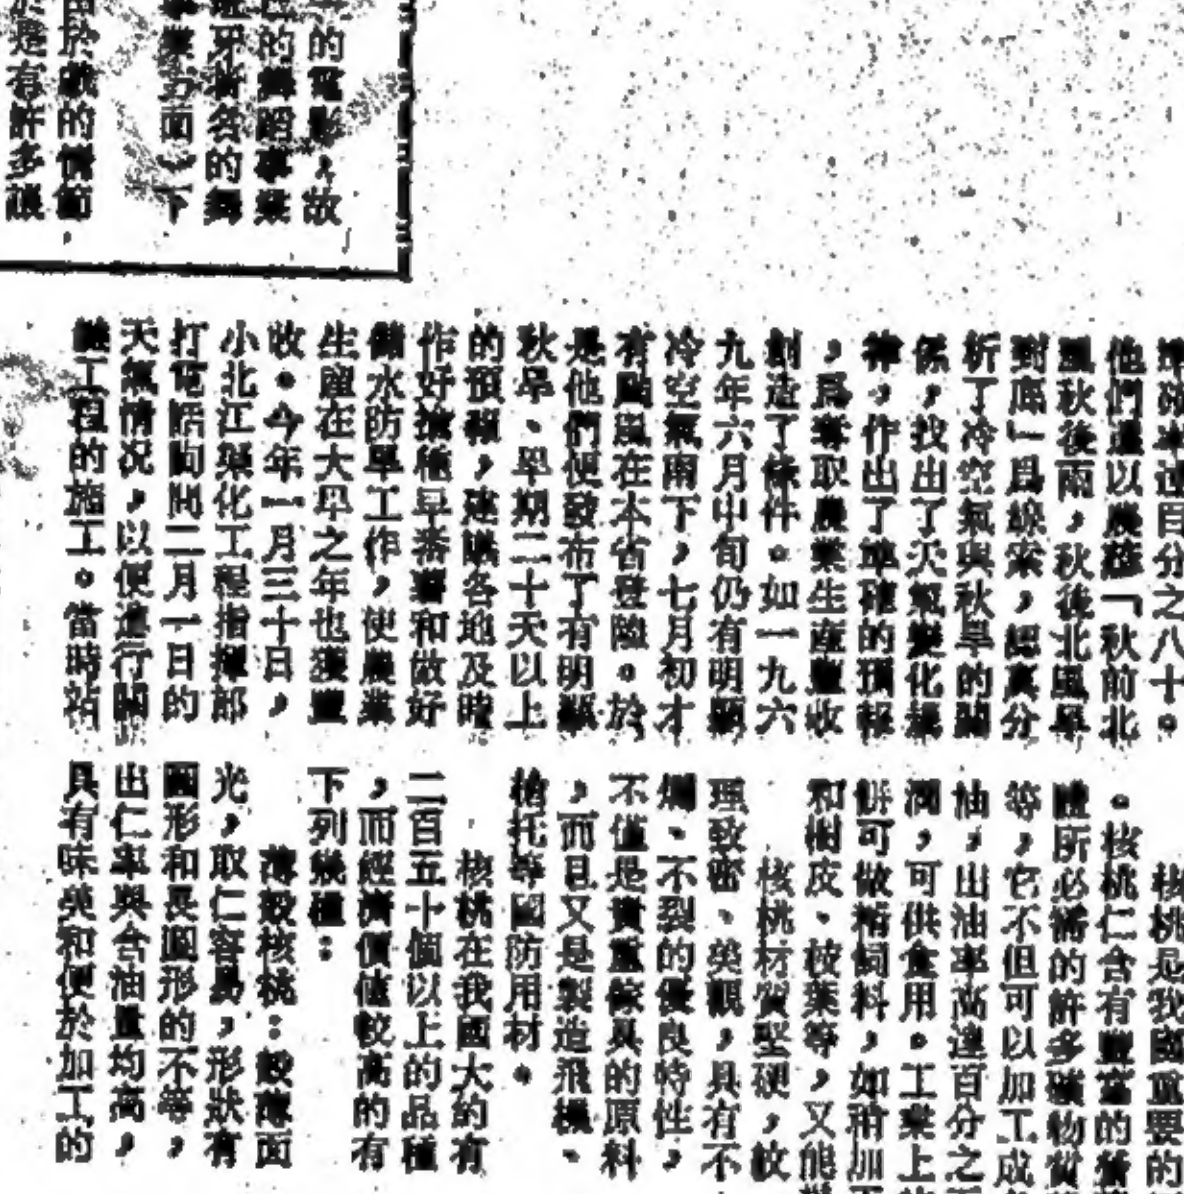 的電影，故
的舞蹈事業
班牙著名的舞
事業方面），下
由於戲的情節，
於是有許多讓
準確率達百分之八十。
他們還以農諺「秋前北
風秋後雨，秋後北風旱
到底」爲線索，認真分
析了冷空氣與秋旱的關
係，找出了天氣變化規
律，作出了準確的預報
，爲奪取農業生產豐收
創造了條件。如一九六
九年六月中旬仍有明顯
冷空氣南下，七月初才
有颱風在本省登陸。於
是他們便發布了有明顯
秋旱、旱期二十天以上
的預報，建議各地及時
作好搶種早番薯和做好
儲水防旱工作，使農業
生產在大旱之年也獲豐
收。今年一月三十日，
小北江渠化工程指揮部
打電話詢問二月一日的
天氣情況，以便進行關
鍵工程的施工。當時站
核桃是我國重要的
。核桃仁含有豐富的營
體所必需的許多礦物質
等，它不但可以加工成
油，出油率高達百分之
潤，可供食用。工業上
餅可做精飼料，如稍加
和樹皮、枝葉等，又能
核桃材質堅硬，紋
理致密、美觀，具有不
爛、不裂的優良特性，
不僅是貴重傢具的原料
，而且又是製造飛機、
槍托等國防用材。
核桃在我國大約有
二百五十個以上的品種
，而經濟價值較高的有
下列幾種：
薄殼核桃：殼薄面
光，取仁容易，形狀有
圓形和長圓形的不等，
出仁率與含油量均高，
具有味美和便於加工的